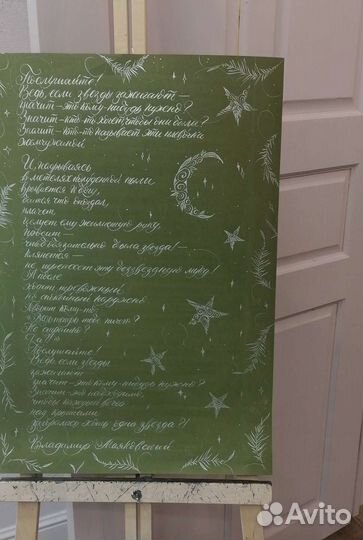 Послушайте!
Ведь, если звезды зажигают —
значит — это кому-нибудь нужно?
Значит — кто-то хочет, чтобы они были?
Значит — кто-то называет эти плевочки
жемчужиной?
И, надрываясь
в метелях полуденной пыли,
врывается к богу,
боится, что опоздал,
плачет,
целует ему жилистую руку,
просит —
чтоб обязательно была звезда! —
клянется —
не перенесет эту беззвездную муку!
А после
ходит тревожный,
но спокойный наружно.
Говорит кому-то:
«Ведь теперь тебе ничего?
Не страшно?
Да?!»
Послушайте!
Ведь, если звезды
зажигают —
значит — это кому-нибудь нужно?
Значит — это необходимо,
чтобы каждый вечер
над крышами
загоралась хоть одна звезда?!
Владимир Маяковский
Avito